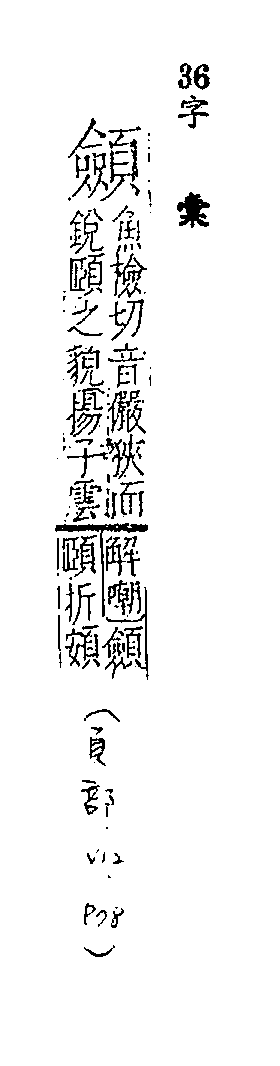 36
字彙
顩
魚檢切音儼狹面
銳頤之貌揚子雲
解嘲顩
頤折頞
(頁部.V12.P78)